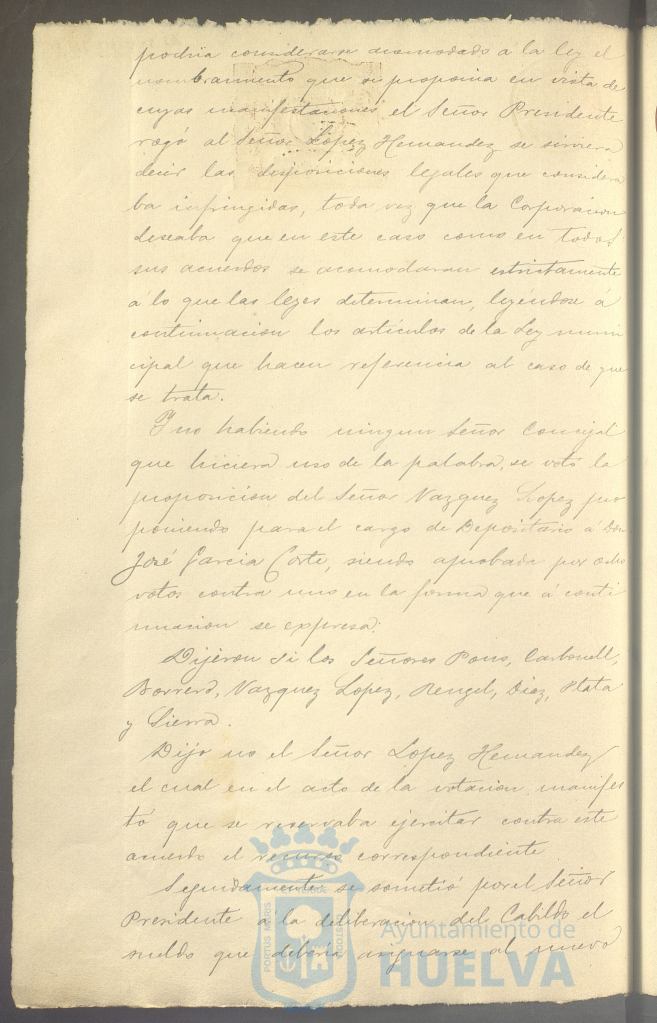 podria considerarse acomodado a la ley el
nombramiento que se proponia en vista de
cuyas manifestaciones el Señor Presidente
rogó al Señor López Hernandez se sirviera
decir las disposiciones legales que considera
ba infringidas, toda vez que la Corporacion
deseaba que en este caso como en todos
sus acuerdos se acomodaran estrictamente
á lo que las leyes determinan, leyéndose á
continuacion los artículos de la Ley muni
cipal que hacen referencia al caso de que
se trata.
Y no habiendo ningun Señor Concejal
que hiciera uso de la palabra, se votó la
proposicion del Señor Vazquez Lopez pro
poniendo para el cargo de Depositario á Don
José Garcia Corte, siendo aprobada por ocho
votos contra uno en la forma que á conti
nuacion se expresa:
Dijeron si los Señores Pons, Carbonell,
Borrero, Vazquez Lopez, Rengel, Diaz, Plata
y Sierra.
Dijo no el Señor Lopez Hernandez
el cual en el acto de la votacion, manifes
tó que se reservaba ejercitar contra este
acuerdo el recurso correspondiente
Segundamente se sometió por el Señor
Presidente á la deliberacion del Cabildo el
sueldo que deberia asignarse al nuevo
Ayuntamiento de
HUELVA
PORTUS MARIS
CUSTODIA